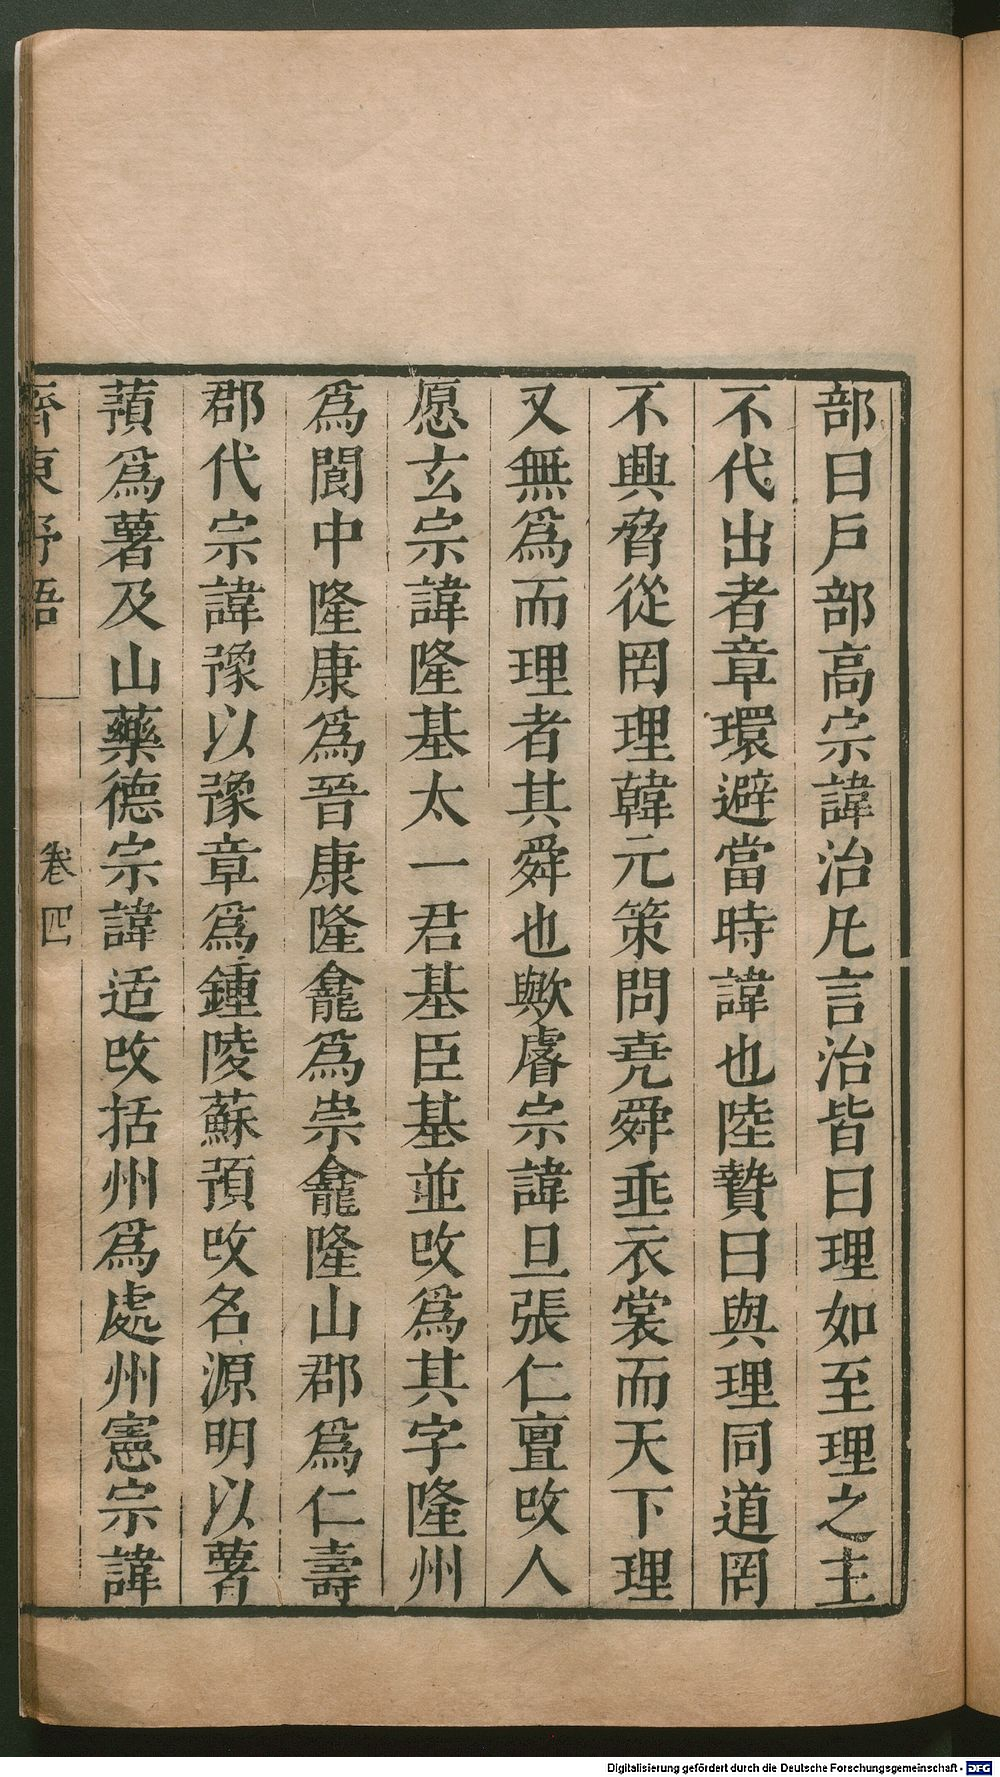 部曰戶部高宗諱治凡言治皆曰理如至理之主
不代出者章環避當時諱也陸贄曰與理同道罔
不興脅從罔理韓元策問堯舜垂衣裳而天下理
又無爲而理者其舜也歟睿宗諱旦張仁亶改人
愿玄宗諱隆基太一君基臣基並改爲其字隆州
爲閬中隆康爲晉康隆龕爲崇龕隆山郡爲仁壽
郡代宗諱豫以豫章爲鍾陵蘇預改名源明以薯
蕷爲薯及山藥德宗諱适改括州爲處州憲宗諱
齊東野語 卷四
Digitalisierung gefördert durch die Deutsche Forschungsgemeinschaft - DFG